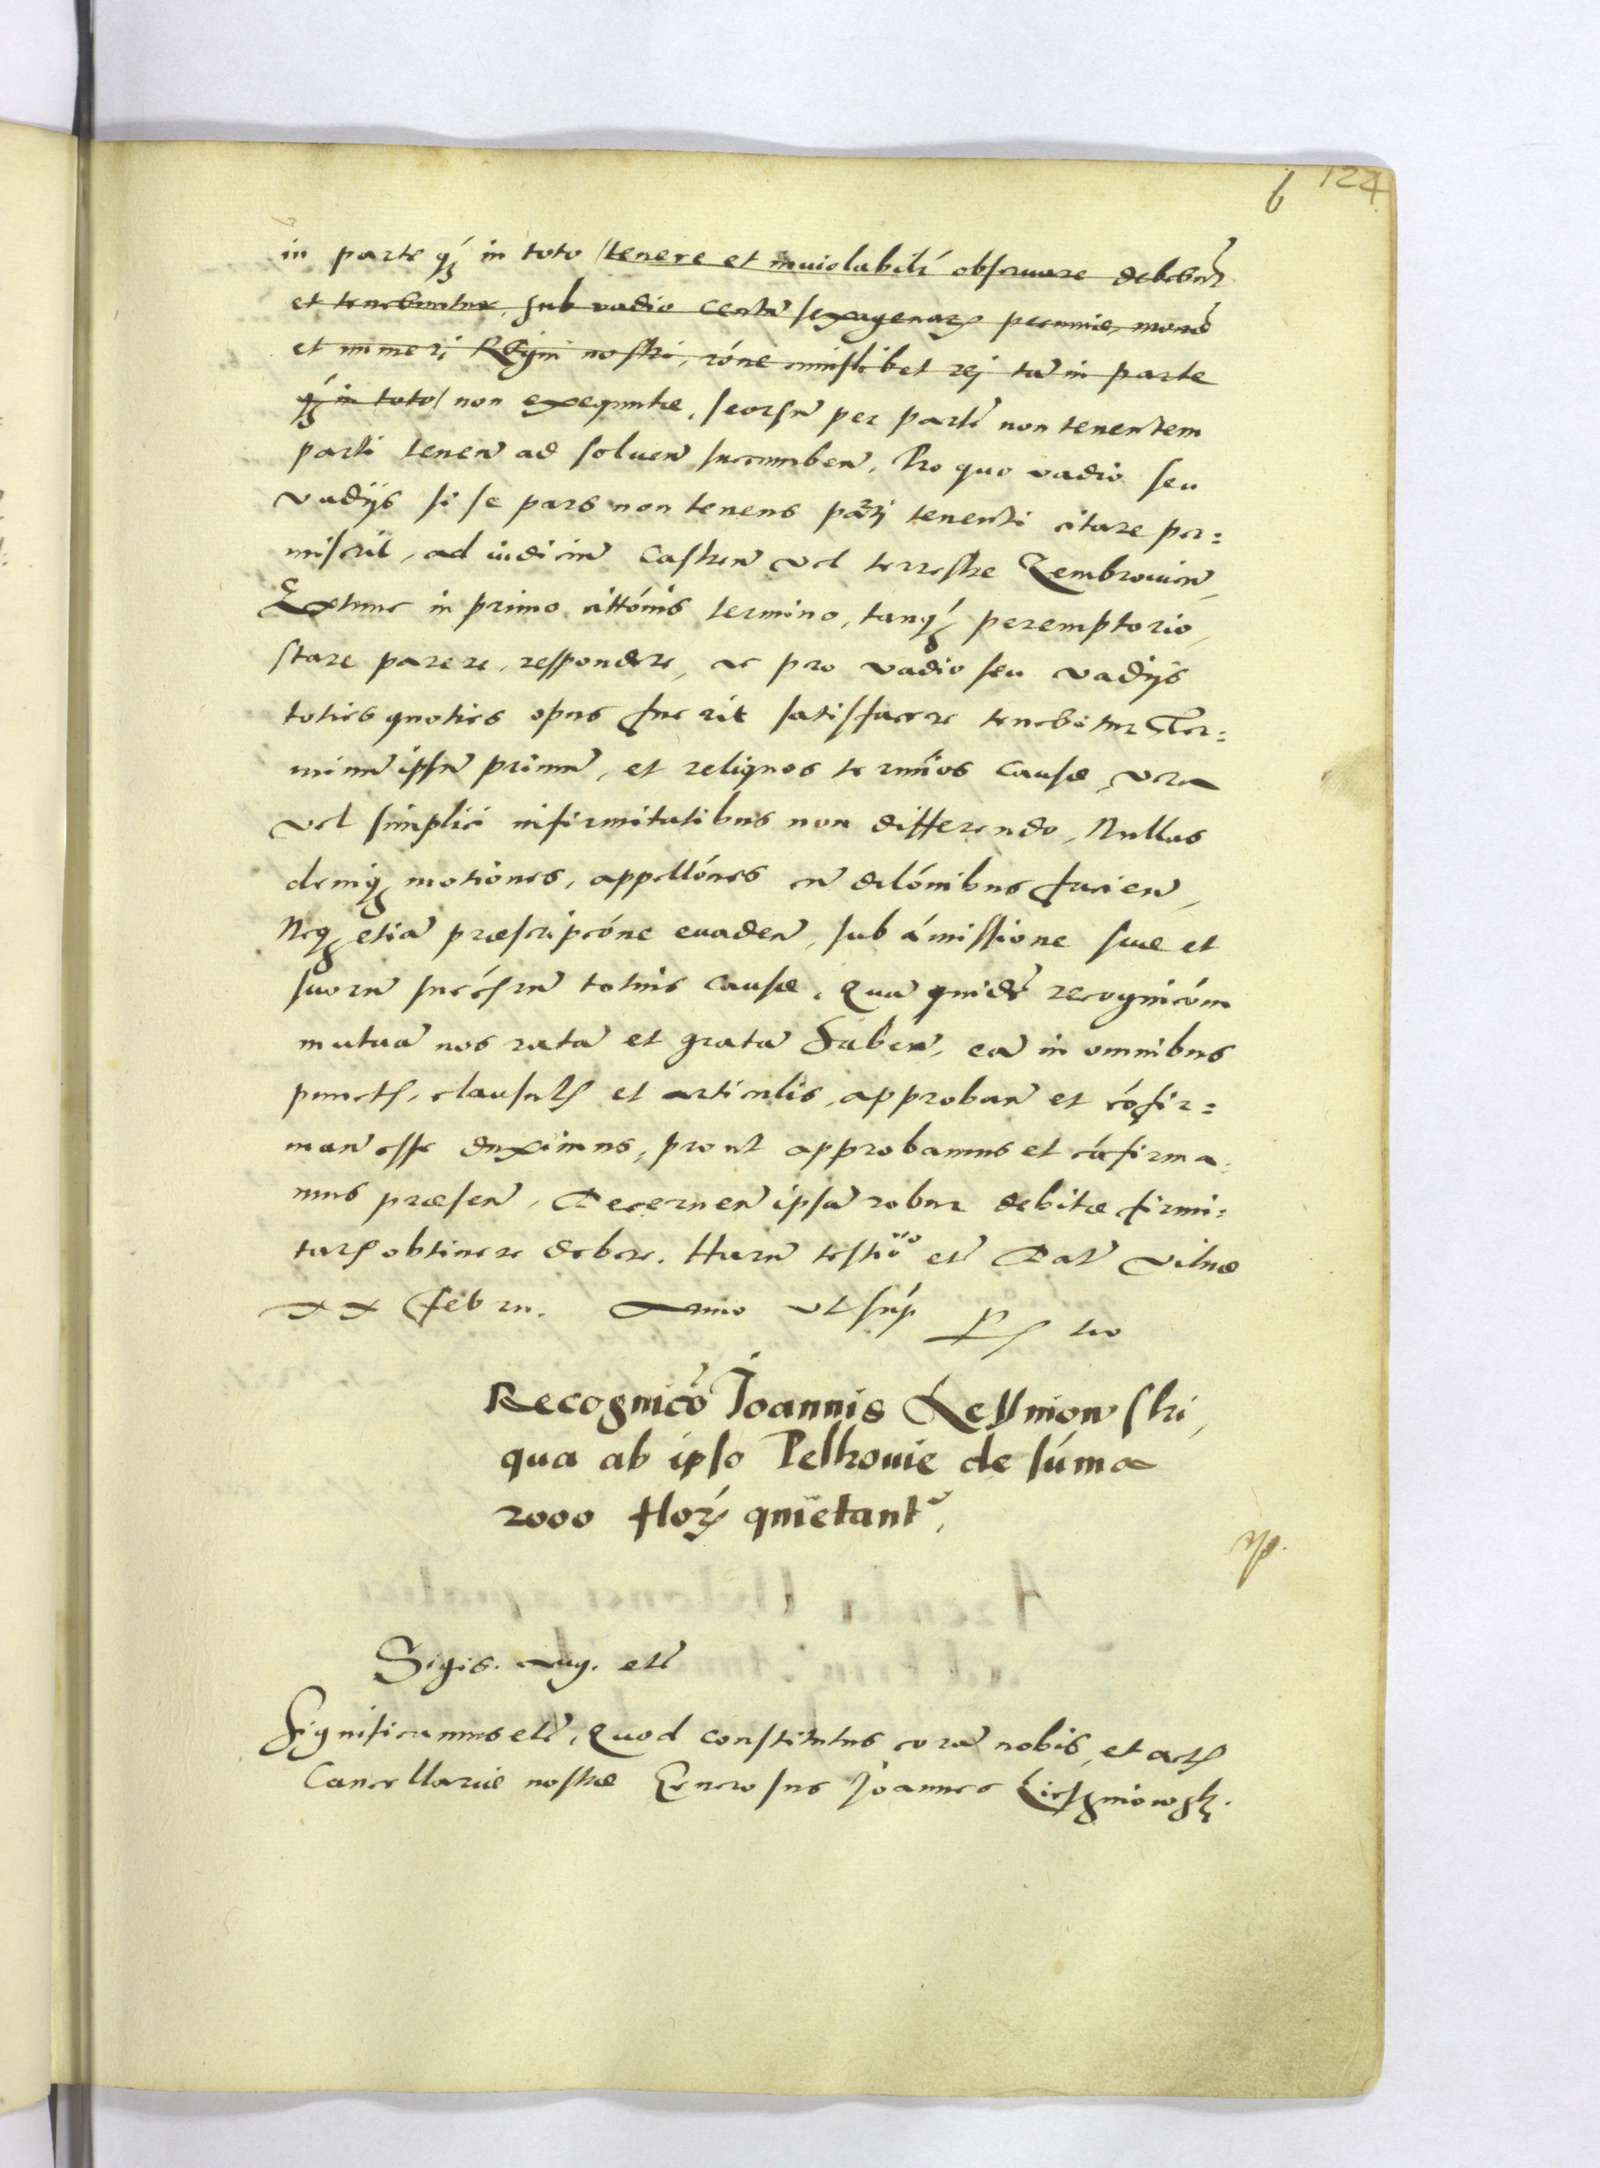 6 124
in parte q́ꝫ in toto /tenere et inuiolabilr̃ obseruare debebũt
et tenebuntur, sub vadio centũ sexagenarꝝ pecuniæ, monetæ
et numeri Regni nostri, rõne cuiuslibet rej tã in parte
q́ꝫ in toto/ non exequutæ, seorsũ per partẽ non tenentem
parti tenen̄ ad soluen̄ succumben̄. Pro quo vadio seu
vadijs si se pars non tenens parti tenenti citare per=
miserit, ad iudiciũ Castren̄ vel terrestre Zembrouien̄,
Extunc in primo cittõnis termino, tanq́ꝫ peremptorio,
stare parere, respondere, ac pro vadio seu vadijs
toties quoties opus fuerit satisfacere tenebitur Ter=
minũ ipsũ primũ, et reliquos terminos causæ, vera
vel simplici infirmitatibus non differendo, Nullas
deniqꝫ motiones, appellões cũ delõnibus facien̄,
Neqꝫ etiã præscripcõne euaden̄, sub ámissione suæ et
suorũ succ̃sorũ totius causæ. Quã quidẽ recognicõm
mutuã nos ratã et gratã haben̄, eã in omnibus
punctꝭ, clausulꝭ et articulis, approban̄ et cõfir=
man̄ esse duximus, prout approbamus et cõfirma=
mus præsen̄. Decernen̄ ipsã robur debitæ firmi=
tatꝭ obtinere debere. Harũ testio et̃c Dat̃ Vilnæ
XX Febru. Anno vt supͣ
Recognicõ Joannis Lessniowski,
qua ab ipso Pelkouie de súma
2000 florꝝ quietantr,
Sigis. Aug. et̃c
Significamus et̃c, Quod constitutus corã nobis, et actꝭ
Cancellariæ nostræ Generosus Joannes Lieszniowsky.